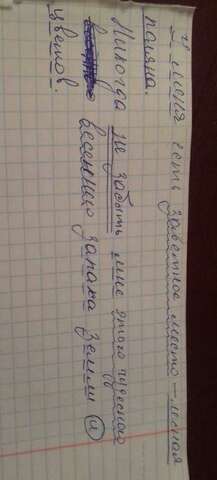 меня есть заветное место – лесная
поляна.
Никогда не забыть мне этого чудесного
весеннего запаха земли и
цветов.